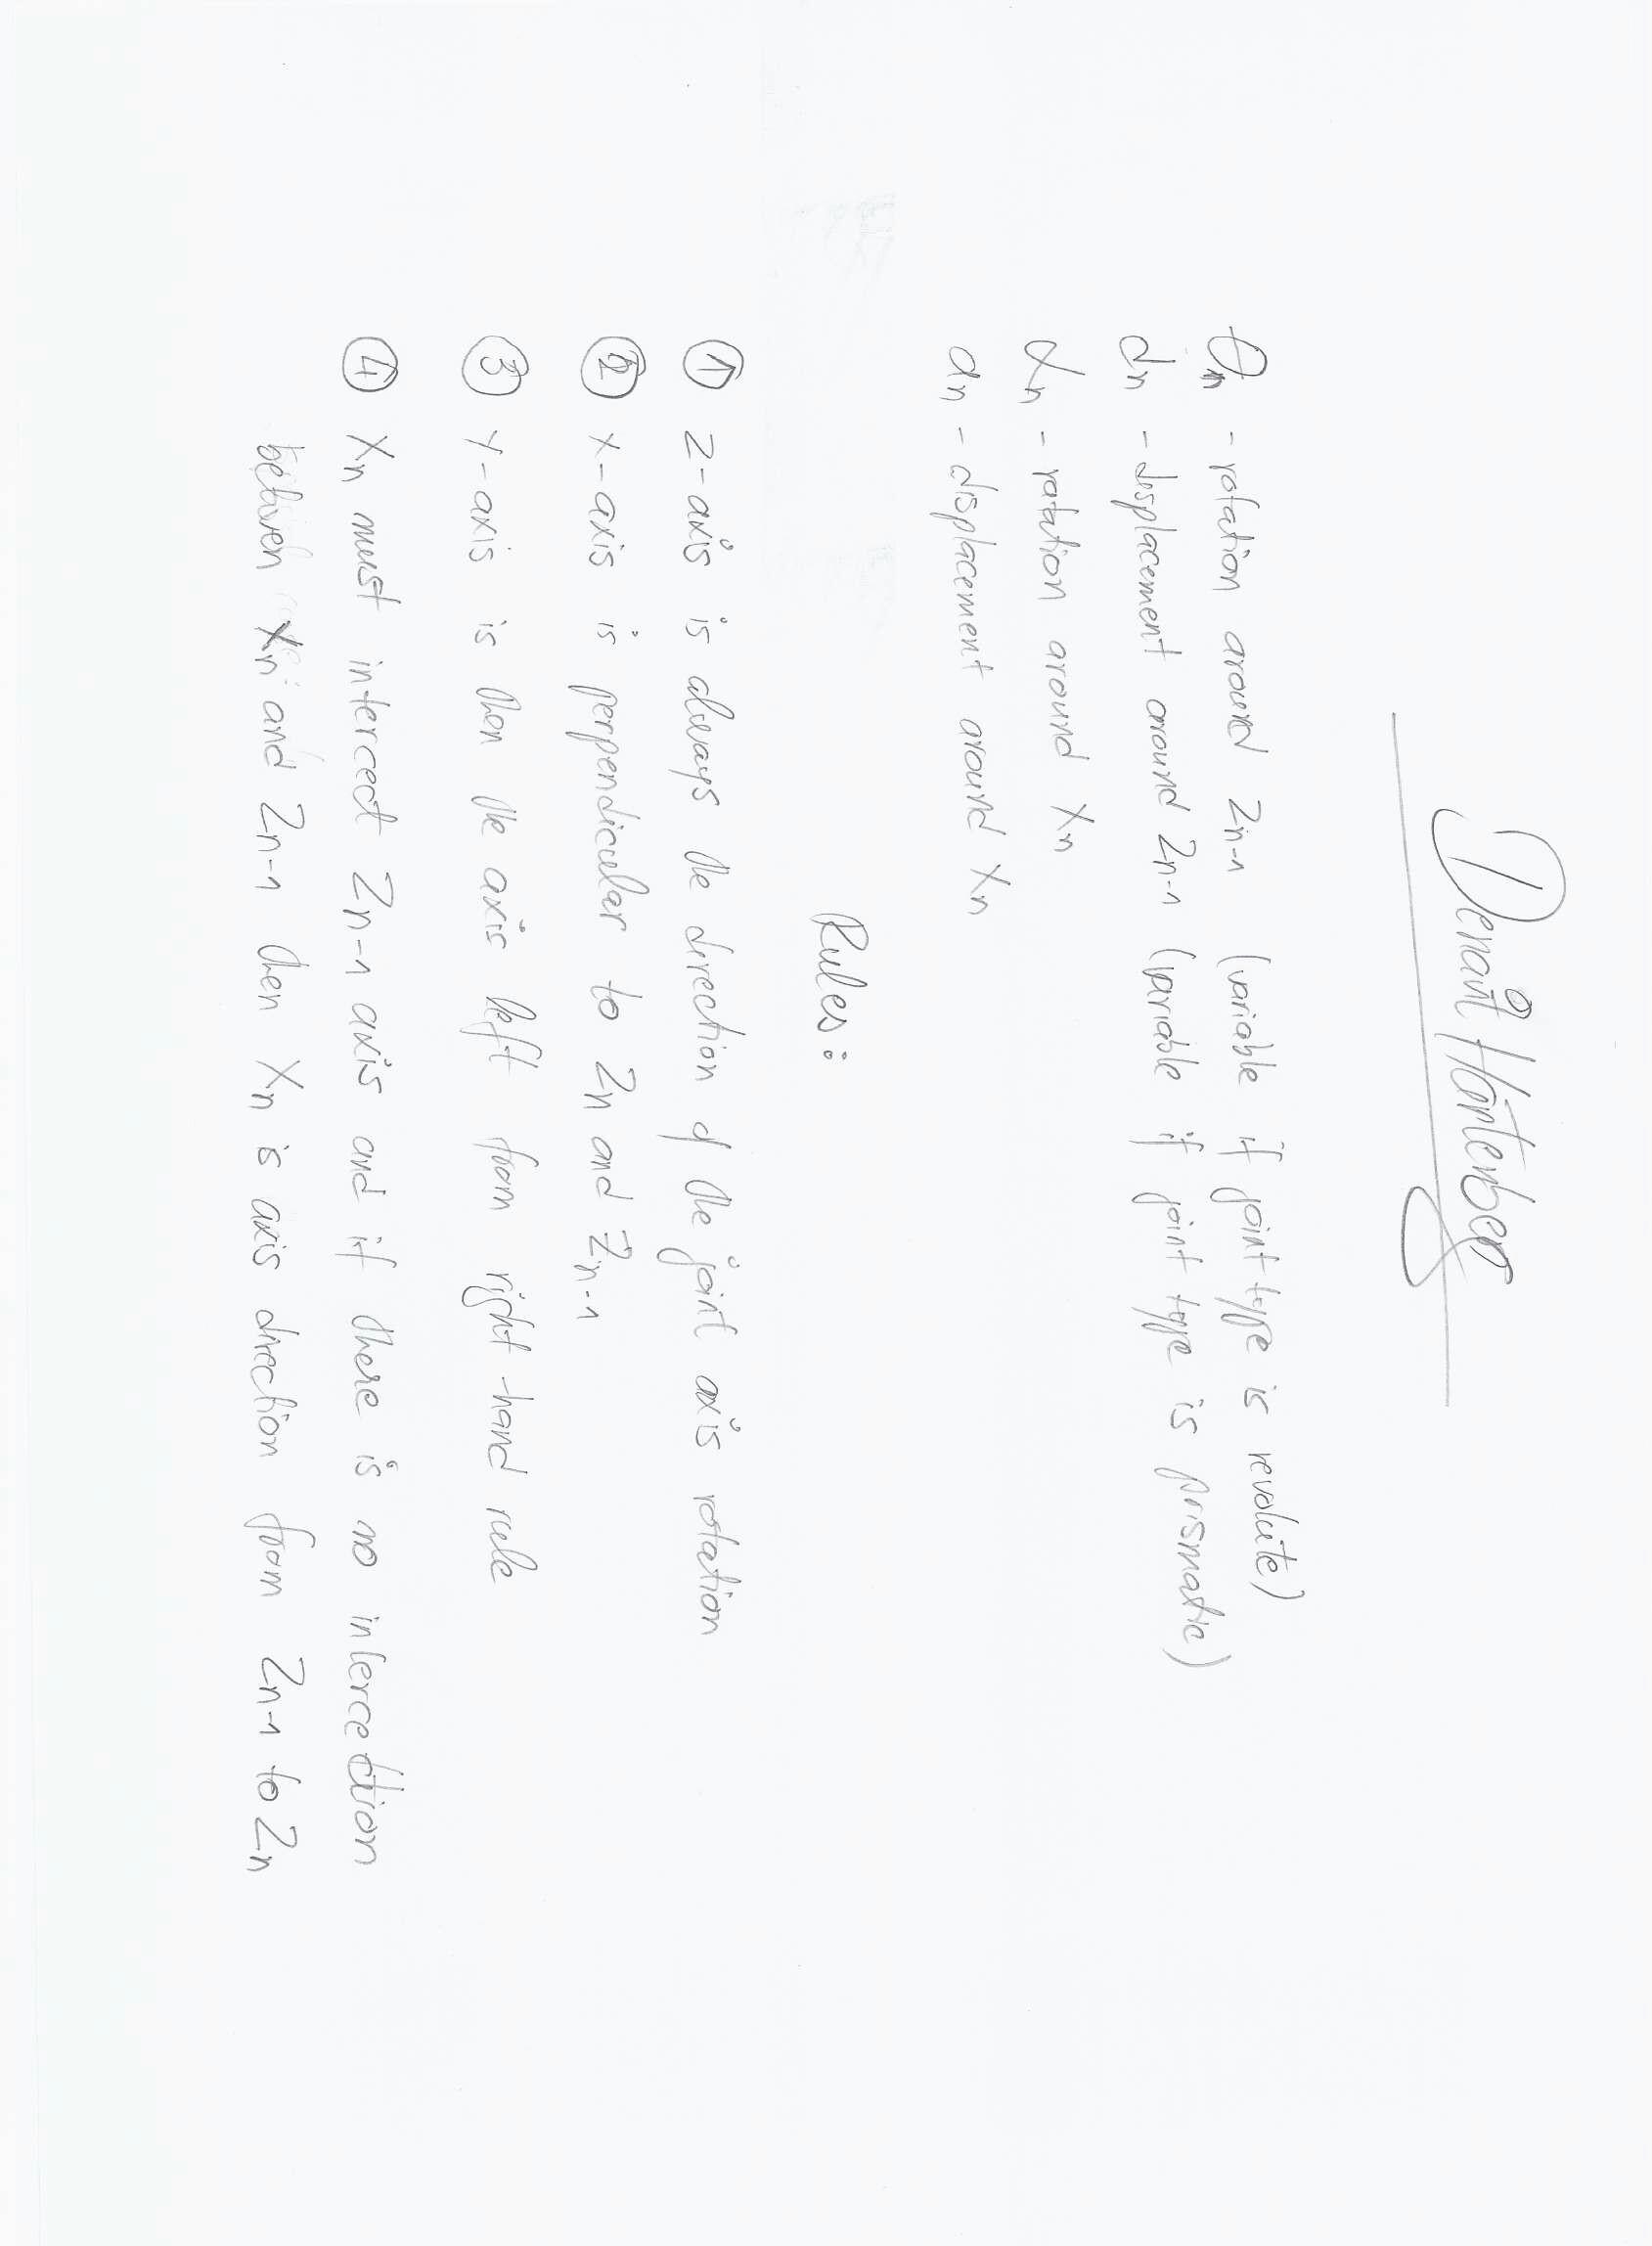 Denavit Hartenberg
θn - rotation around Zn-1 (variable if joint type is revolute)
dn - displacement around Zn-1 (variable if joint type is prismatic)
αn - rotation around Xn
an - displacement around Xn
Rules:
① Z-axis is always the direction of the joint axis rotation
② X-axis is perpendicular to Zn and Zn-1
③ Y-axis is then the axis left from right-hand rule
④ Xn must intercect Zn-1 axis and if there is no intercection
between Xn and Zn-1 then Xn is axis direction from Zn-1 to Zn